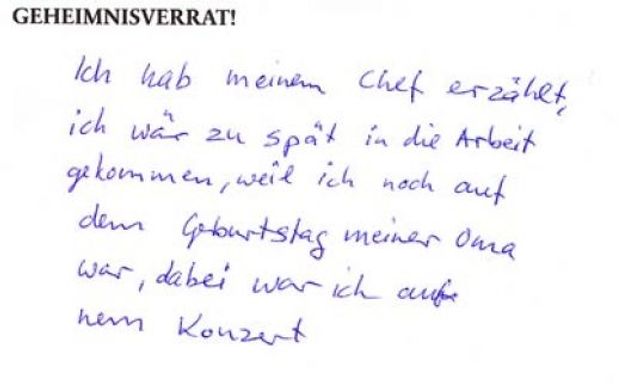 GEHEIMNISVERRAT!
Ich hab meinem Chef erzählt,
ich wär zu spät in die Arbeit
gekommen, weil ich noch auf
dem Geburtstag meiner Oma
war, dabei war ich auf
nem Konzert